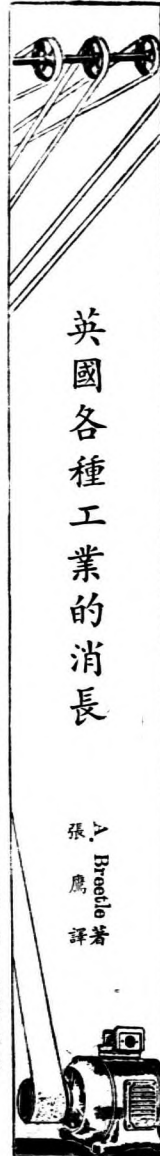 英國各種工業的消長
A. Breetle著
張鷹譯